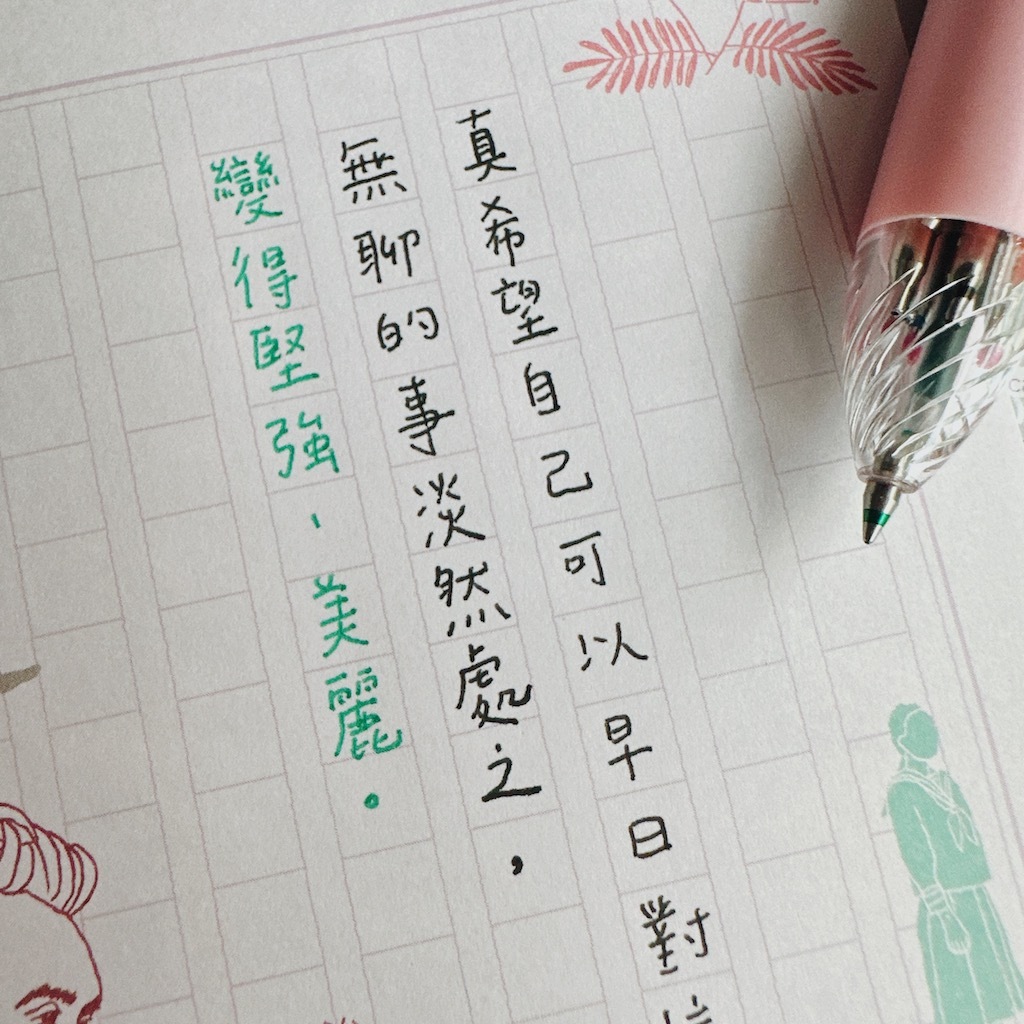 真希望自己可以早日對
無聊的事淡然處之，
變得堅強、美麗。